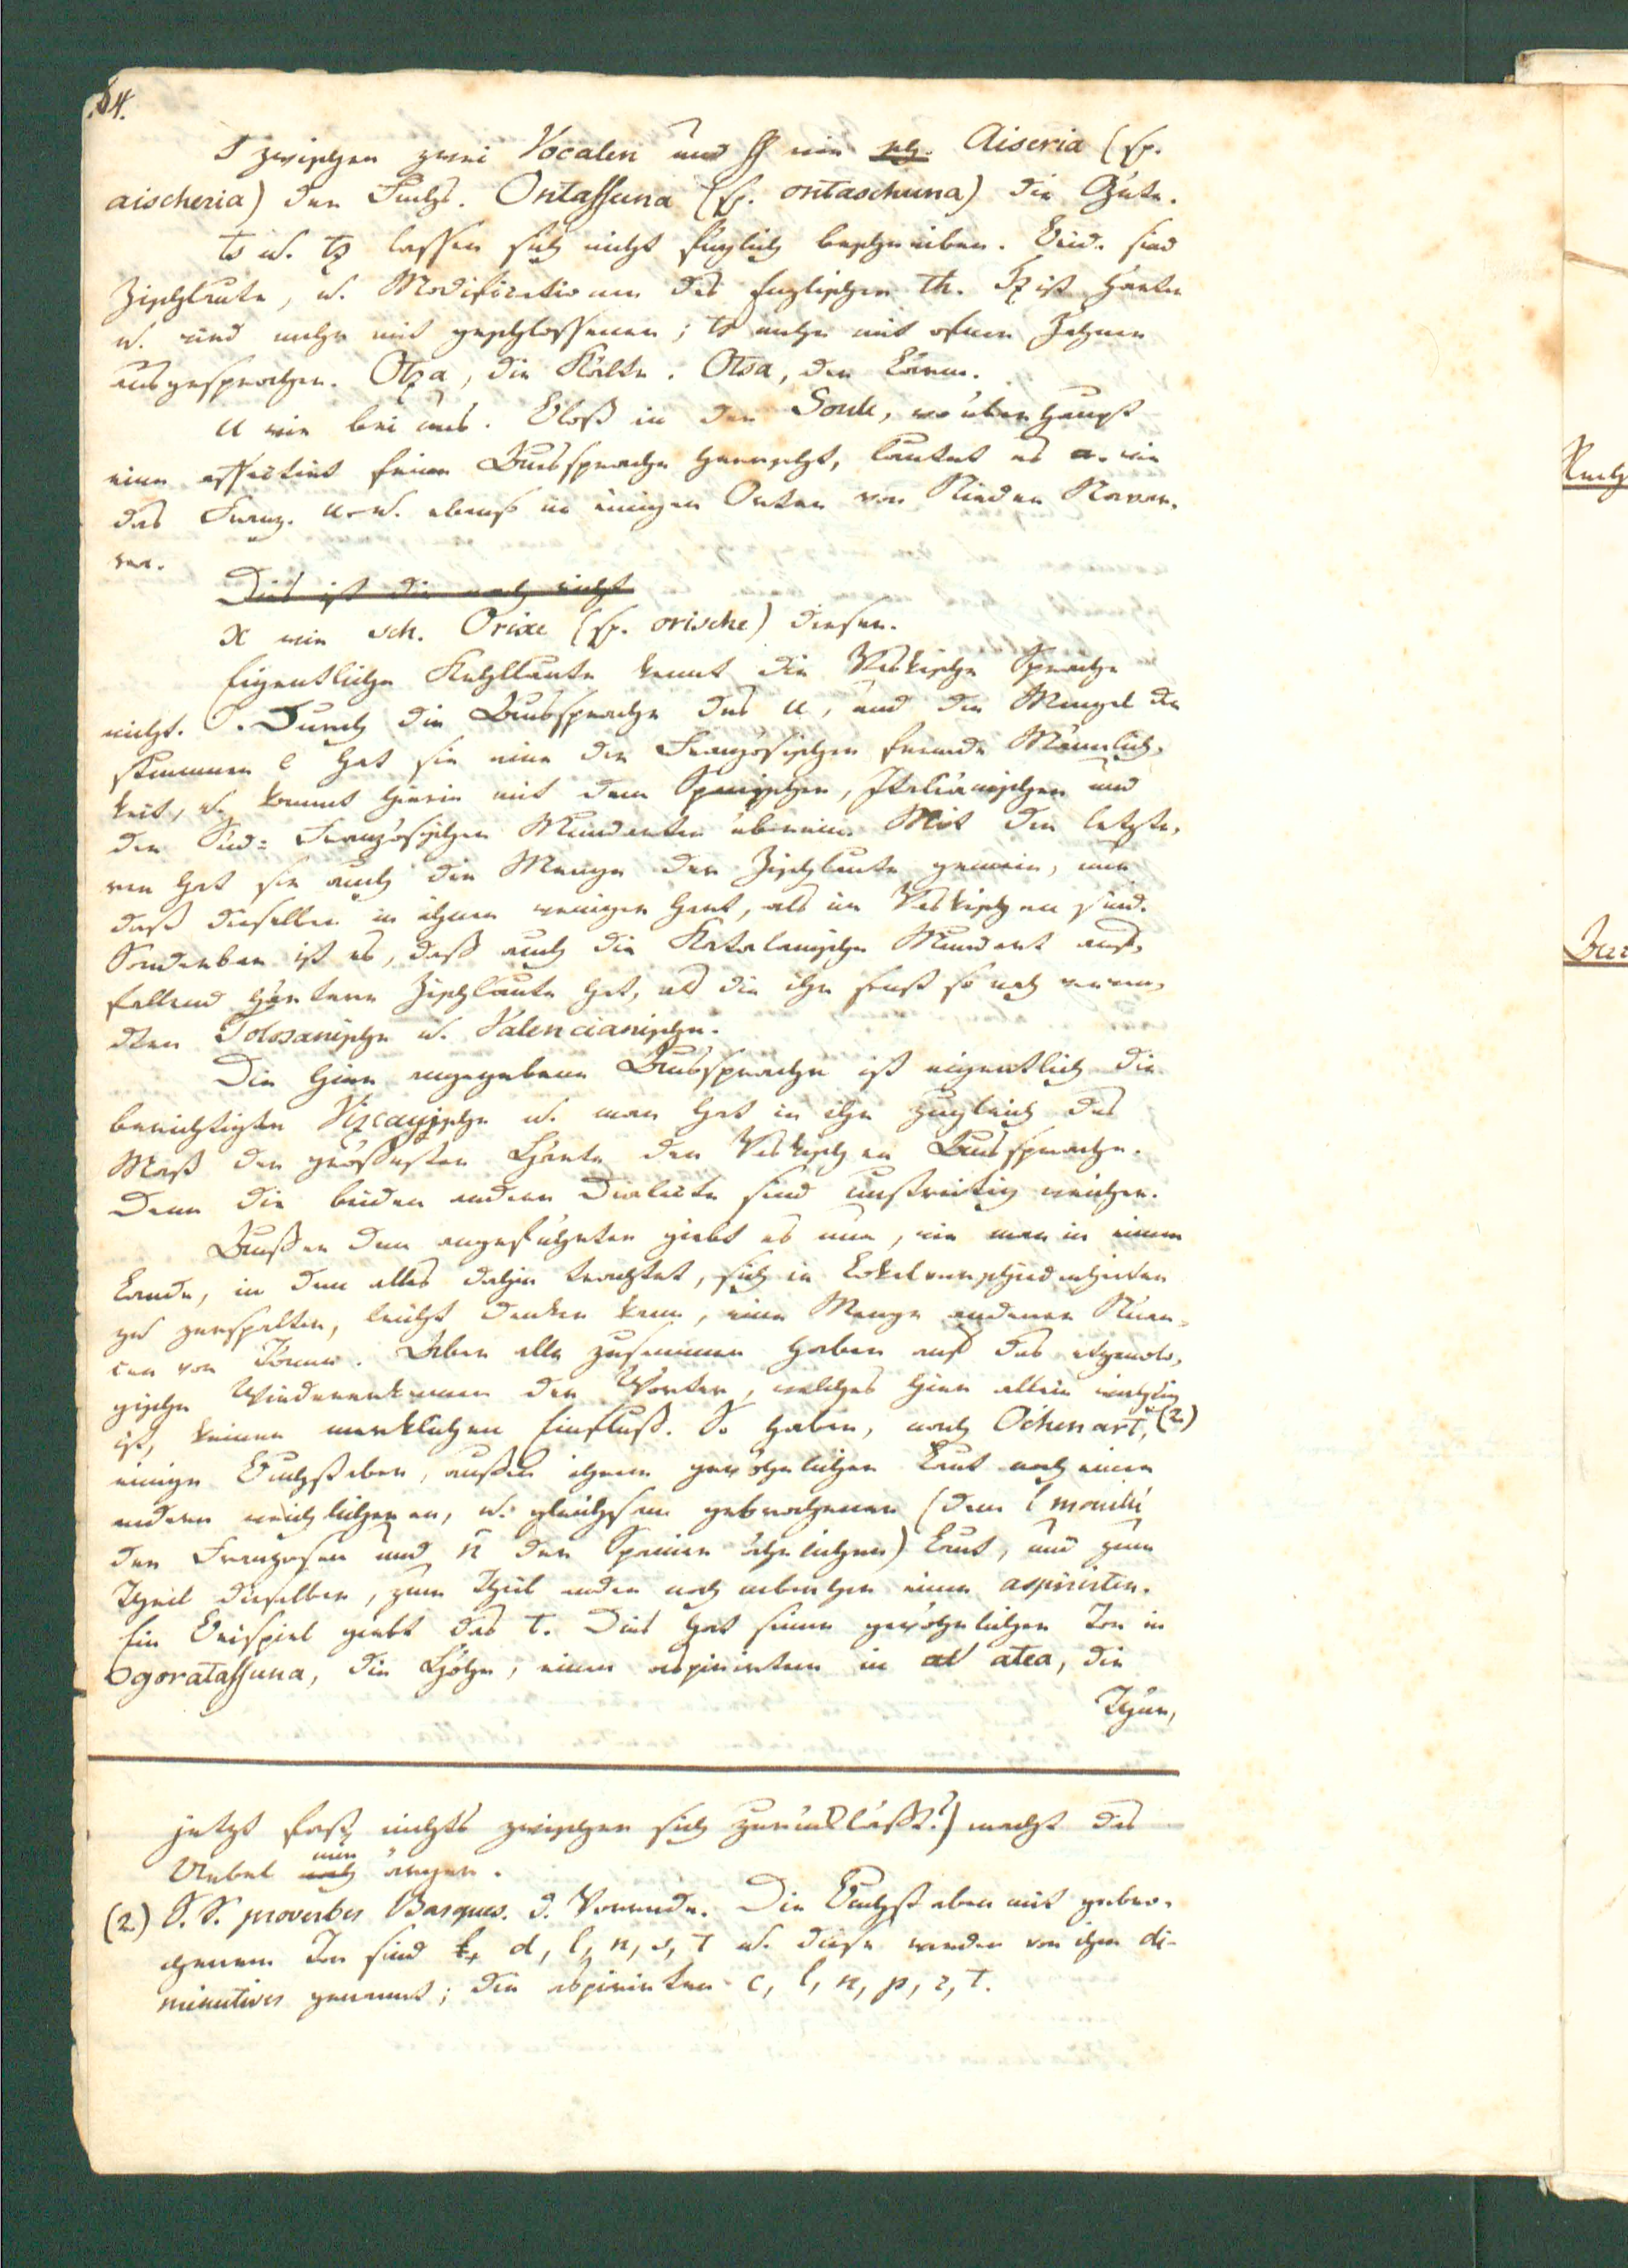 64.
S zwischen zwei Vocalen und ß wie sch. Aiseria (sp.
aischeria) der Fuchs. Ontassuna (sp. ontaschuna) die Güte.
ts u. tz lassen sich nicht füglich beschreiben. Beid. sind
Zischlaute, u. Modificationen des Englischen th. Tz ist härter
u. wird mehr mit geschlossenen; ts mehr mit ofnen Zähnen
ausgesprochen. Otza, die Kälte. Otsa, der Lärm.
U wie bei uns. Bloß in der Soule, wo überhaupt
eine affectirt feine Aussprache herrscht, lautet es wie
das Franz. u. u. ebenso in einigen Orten von Nieder Navar-
ra.
Dies ist die noch nicht
X wie sch. Orixe (sp. orische) dieser.
Eigentliche Kehllaute kennt die Vaskische Sprache
nicht. Durch die Aussprache des u, und den Mangel des
stummen e hat sie eine der Französischen fremde Männlich-
keit, u. kommt hierin mit dem Spanischen, Italiänischen und
den Süd-Französischen Mundarten überein. Mit den letzte-
ren hat sie auch die Menge der Zischlaute gemein, nur
daß dieselben in ihnen weniger hart, als im Vaskischen sind.
Sonderbar ist es, daß auch die Katalanische Mundart auf-
fallend härtere Zischlaute hat, als die ihr sonst so nah verwan-
dten Tolosanische u. Valencianische.
Die hier angegebene Aussprache ist eigentlich die
berichtigte Vizcayische u. man hat in ihr zugleich das
Maß der größesten Härte der Vaskischen Aussprache.
Denn die beiden andern Dialecte sind unstreitig weicher.
Außer den angeführten giebt es nun, wie man in einem
Lande, in dem alles dahin trachtet, sich in Localverschiedenheiten
zu zerspalten, leicht denken kann, eine Menge anderer Nüan-
cen von Tönen. Aber alle zusammen haben auf das etymolo-
gische Wiedererkennen der Wörter, welches hier allein wichtig
ist, keinen merklichen Einfluß. So haben, nach Oihenart, (2)
einige Buchstaben, außer ihrem gewöhnlichen Laut noch einen
andern weichlicheren, u. gleichsam gebrochenen (dem l mouillé
der Franzosen und ñ der Spanier ähnlichen) Laut, und zum
Theil dieselben, zum Theil andre noch nebenher einen aspirirten.
Ein Beispiel giebt das t. Dies hat seinen gewöhnlichen Ton in
Ogoratassuna, die Höhe, einen aspirirten in atea, die
Thür,
jetzt fast nichts zwischen sich zurückläßt?) macht das
Uebel nur ärger.
(2) S. S. proverbes Basques. d. Vorrede. Die Buchstaben mit gebro-
chenem Ton sind d, l, n, s, t u. diese werden von ihm di-
minutives genannt; die aspirirten c, l, n, p, r, t.